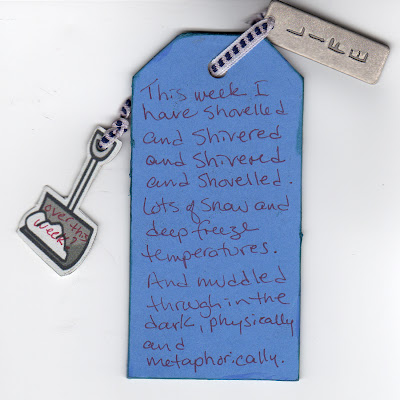 LIFE
This week I
have shovelled
and shivered
and shivered
and shovelled.
Lots of snow and
deep freeze
temperatures.
And muddled
through in the
dark, physically
and
metaphorically.
over this
week?